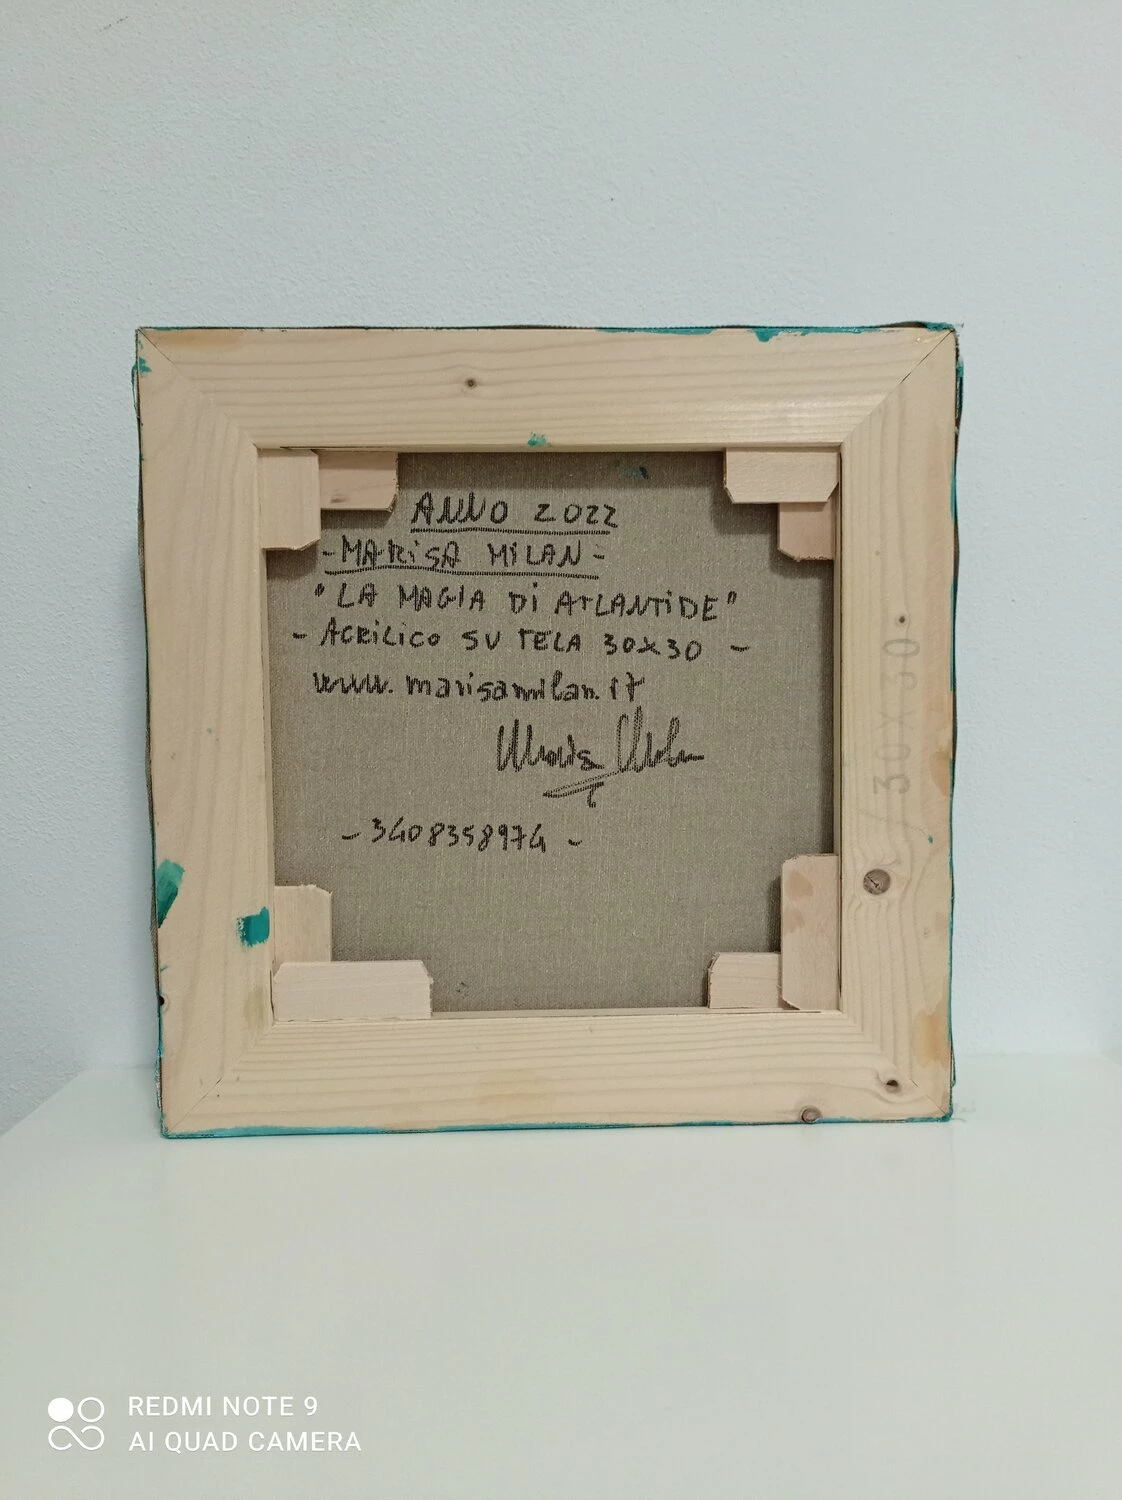 ANNO 2022
- MARiSA MiLAN -
"LA MAGIA Di ATLANTiDE"
- ACRiLiCO SU TELA 30x30 -
www.marisamilan.it
Marisa Milan
- 3408358974 -
/30X30
REDMI NOTE 9
AI QUAD CAMERA